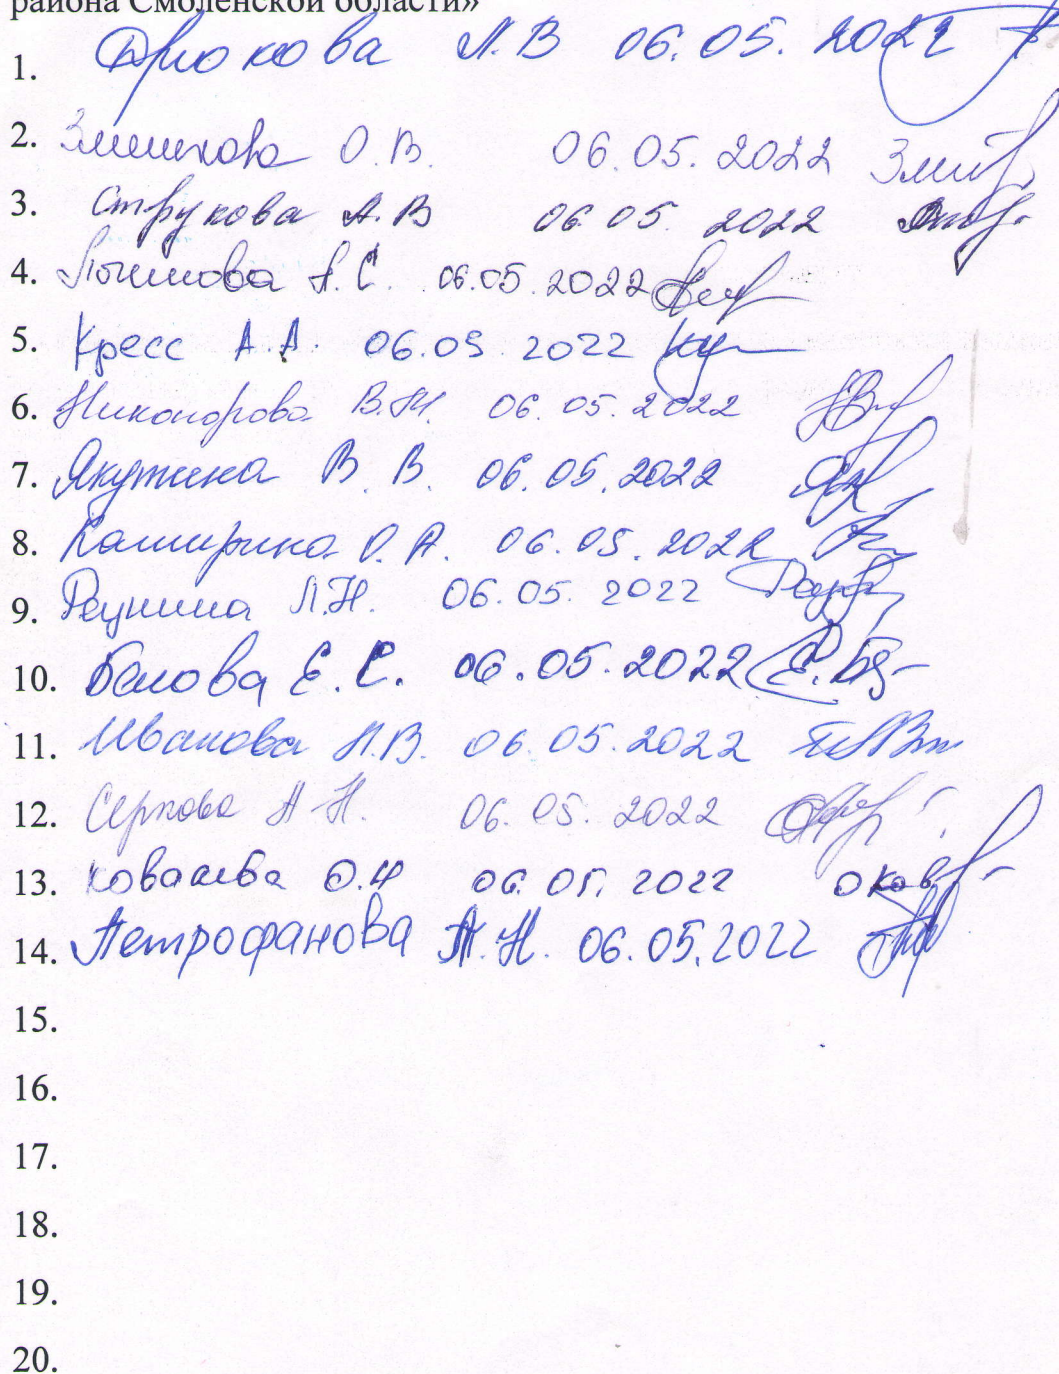 района Смоленской области»
1. Крюкова Л.В 06.05.2022
2. О.В. 06.05.2022
3. Струкова А.В 06.05 2022
4. А.С. 06.05.2022
5. Кресс А.А. 06.05 2022
6. Никонорова В.Н. 06.05.2022
7. Якушина В.В. 06.05.2022
8. Каширина О.А. 06.05.2022
9. Л.Н. 06.05.2022
10. Белова Е.С. 06.05.2022
11. Иванова Н.В. 06.05.2022
12. Серкова А.Н. 06.05.2022
13. О.Н 06.05.2022
14. Петрофанова Т.Н. 06.05.2022
15.
16.
17.
18.
19.
20.